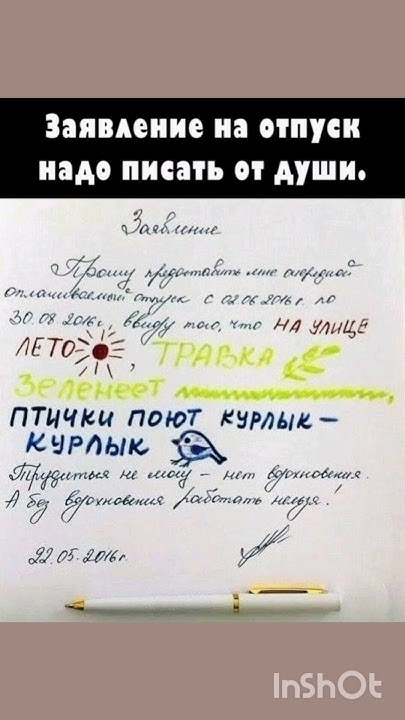 Заявление на отпуск
надо писать от души.
Заявление
Прошу предоставить мне очередной
оплачиваемый отпуск с 02.06.2016г. по
30.08.2016г., ввиду того, что НА УЛИЦЕ
ЛЕТО, ТРАВКА
Зеленеет,
ПТИЧКИ ПОЮТ КУРЛЫК –
КУРЛЫК
Трудиться не могу – нет вдохновения.
А без вдохновения работать нельзя!
22.05.2016г.
InShOt